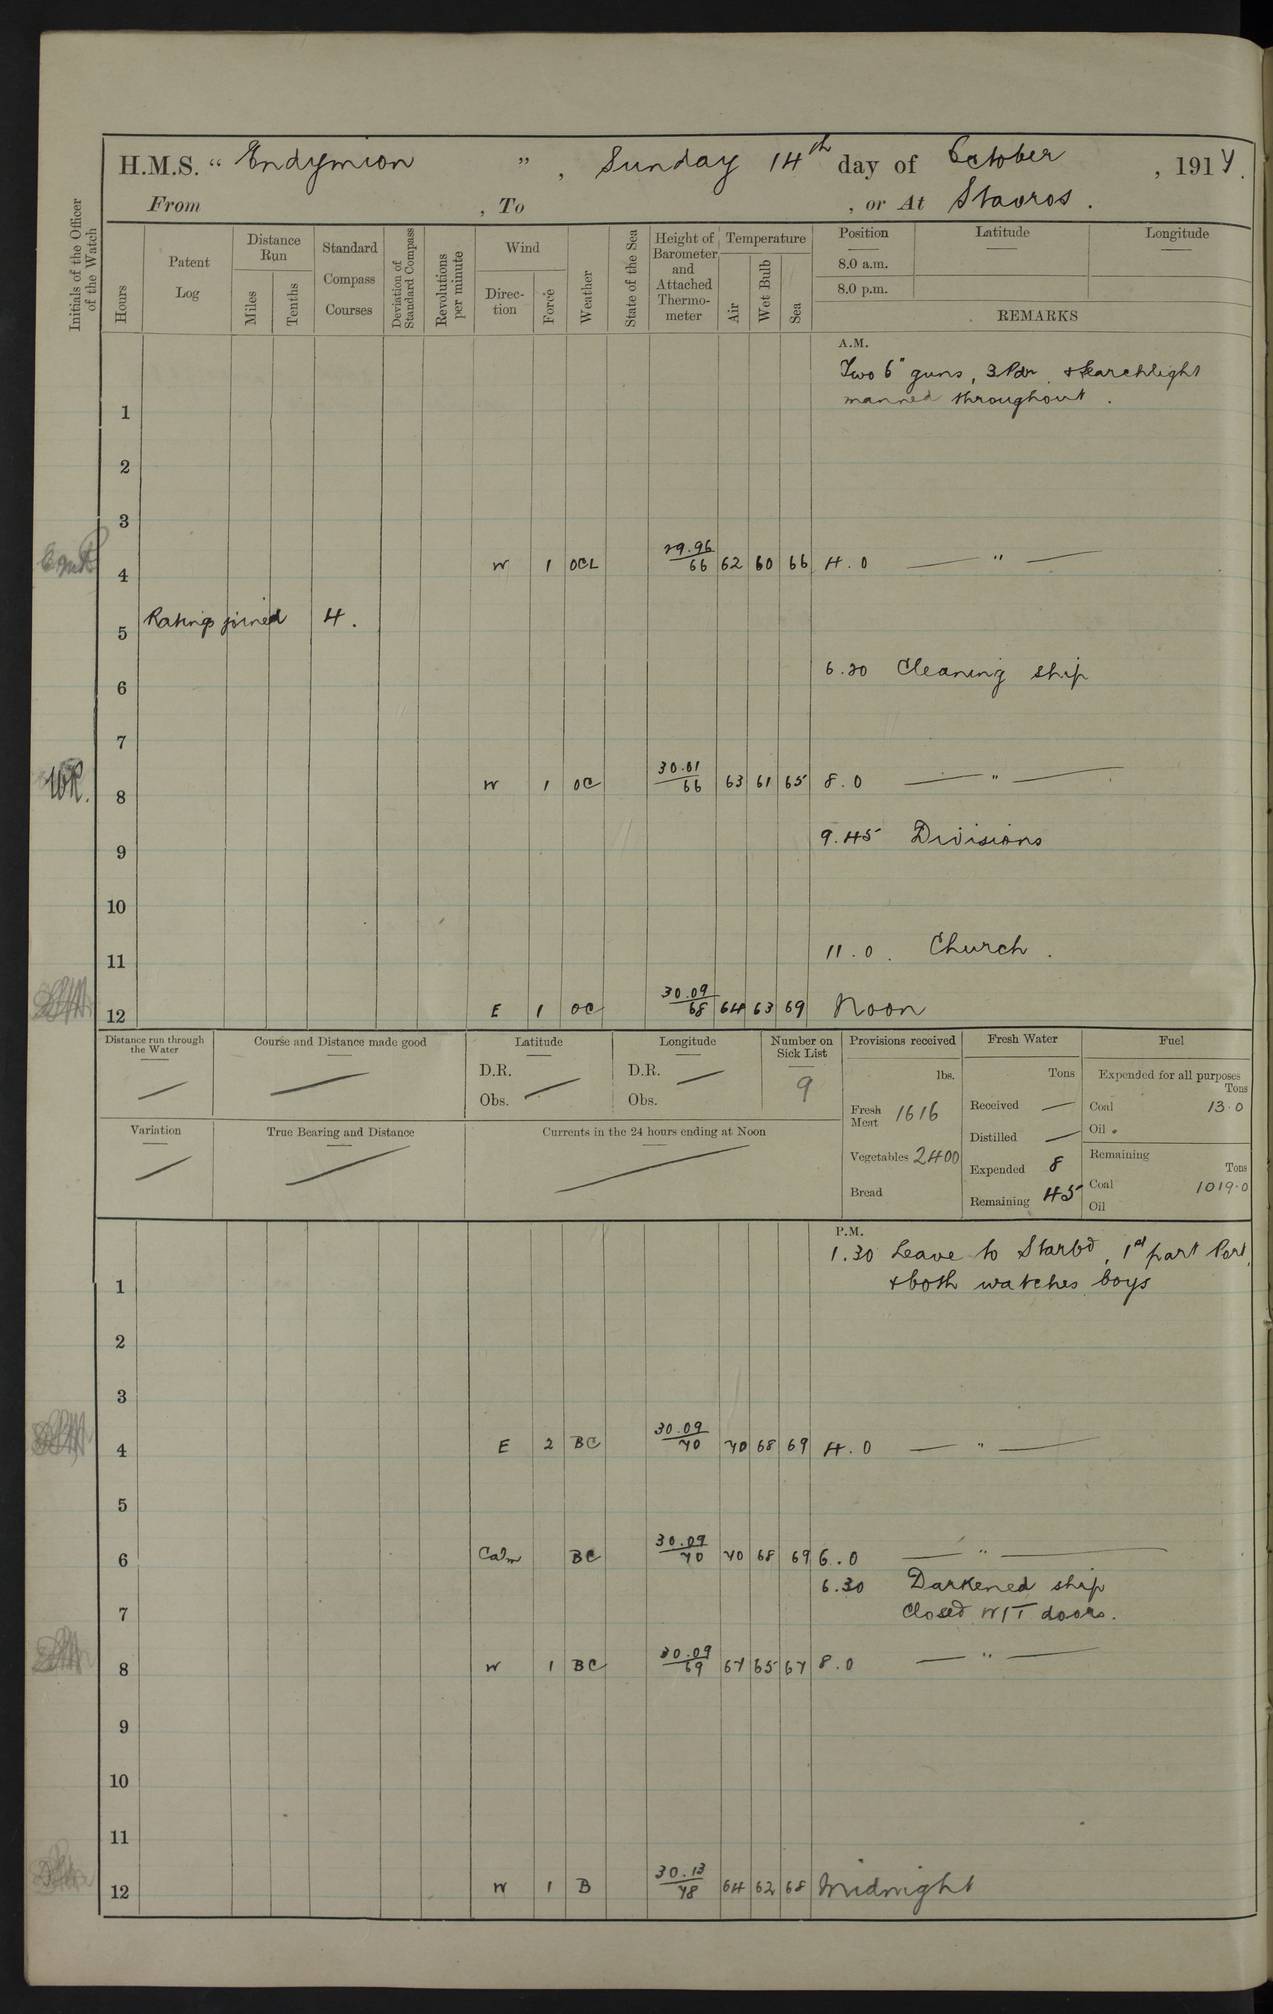 H.M.S. “ Endymion ” , Sunday 14th day of October , 1917.
From , To , or At Stavros .
Initials of the Officer of the Watch
Hours
Patent Log
Distance Run
Miles
Tenths
Standard Compass Courses
Deviation of Standard Compass
Revolutions per minute
Wind
Direc-tion
Force
Weather
State of the Sea
Height of Barometer and Attached Thermo-meter
Temperature
Air
Wet Bulb
Sea
Position
8.0 a.m.
8.0 p.m.
Latitude
Longitude
REMARKS
A.M.
Two 6" guns, 3 Pdr & Searchlight
1 manned throughout .
2
3
4 W 1 OCL 29.96/66 62 60 66 4.0 — " —
5 Ratings joined 4.
6 6.20 Cleaning ship
7
8 W 1 OC 30.01/66 63 61 65 8.0 — " —
9 9.45 Divisions
10
11 11.0. Church .
12 E 1 OC 30.09/68 64 63 69 Noon
Distance run through the Water —
Course and Distance made good —
Latitude
D.R. —
Obs.
Longitude
D.R. —
Obs.
Number on Sick List
9
Variation —
True Bearing and Distance —
Currents in the 24 hours ending at Noon —
Provisions received
lbs.
Fresh Meat 1616
Vegetables 2400
Bread
Fresh Water
Tons
Received —
Distilled —
Expended 8
Remaining 45
Fuel
Expended for all purposes
Tons
Coal 13.0
Oil .
Remaining
Tons
Coal 1019.0
Oil
P.M.
1.30 Leave to Starbd, 1st part Port,
1 & both watches boys
2
3
4 E 2 BC 30.09/70 70 68 69 4.0 — " —
5
6 Calm BC 30.09/70 70 68 69 6.0 — " —
6.30 Darkened ship
7 Closed W/T doors.
8 W 1 BC 30.09/69 67 65 67 8.0 — " —
9
10
11
12 W 1 B 30.13/78 64 62 68 Midnight